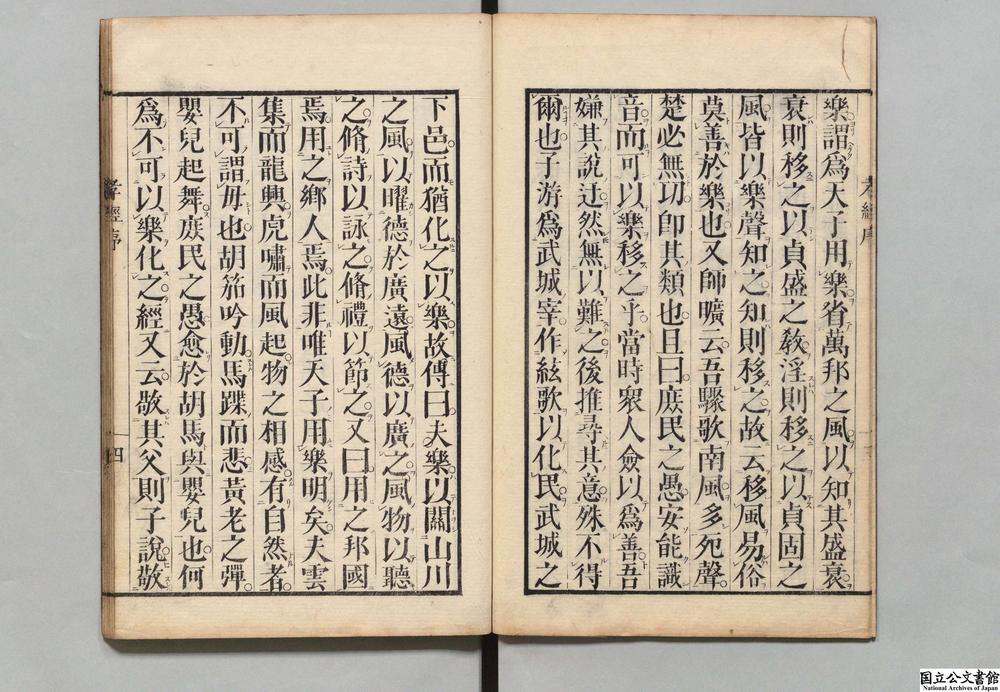 樂謂爲天子用樂省萬邦之風以知其盛衰
衰則移之以貞盛之敎淫則移之以貞固之
風皆以樂聲知之知則移之故云移風易俗
莫善於樂也又師曠云吾驟歌南風多死聲
楚必無功卽其類也且曰庶民之愚安能識
音而可以樂移之乎當時衆人僉以爲善吾
嫌其說迂然無以難之後推尋其意殊不得
爾也子游爲武城宰作絃歌以化民武城之
下邑而猶化之以樂故傳曰夫樂以關山川
之風以曜德於廣遠風德以廣之風物以聽
之脩詩以詠之脩禮以節之又曰用之邦國
焉用之鄉人焉此非唯天子用樂明矣夫雲
集而龍興虎嘯而風起物之相感有自然者
不可謂毋也胡笳吟動馬蹀而悲黃老之彈
嬰兒起舞庶民之愚愈於胡馬與嬰兒也何
爲不可以樂化之經又云敬其父則子說敬
孝經序
四
国立公文書館
National Archives of Japan